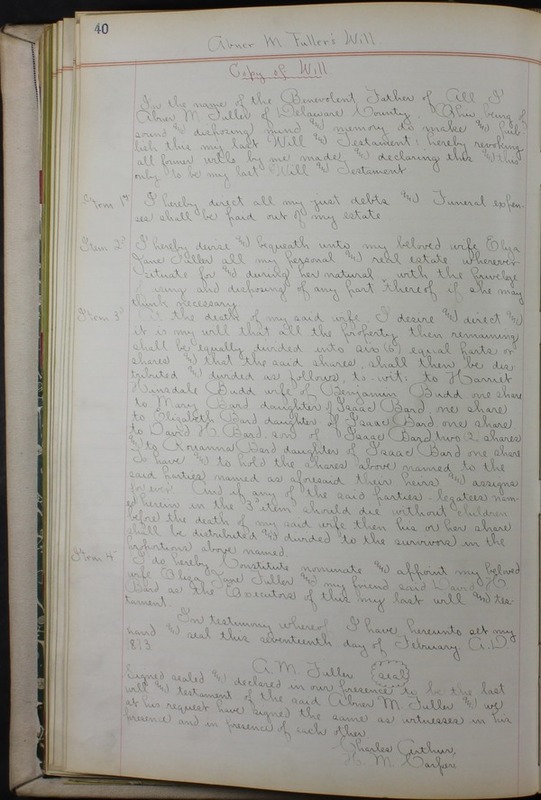 40
Abner M. Fuller's Will
Copy of Will
In the name of the Benevolent Father of All I
Abner M. Fuller of Delaware County, Ohio being of
sound & disposing mind & memory do make & pub
lish this my last Will & Testament; hereby revoking
all former wills by me made, & declaring this & this
only to be my last Will & Testament
Item 1st I hereby direct all my just debts & Funeral expen-
ses shall be paid out of my estate
Item 2d I hereby devise & bequeath unto my beloved wife Eliza
Jane Fuller all my personal & real estate wherever
situate for & during her natural with the privilege
of using and disposing of any part thereof if she may
think necessary
Item 3d At the death of my said wife, I desire & direct &
it is my will that all the property then remaining
shall be equally divided into six (6) equal parts or
shares & that the said shares, shall then be dis
tributed & divided as follows, to-wit; to Harriet
Hinsdale Budd wife of Benjamin Budd one share
to Mary Bard daughter of Isaac Bard, one share
to Elizabeth Bard daughter of Isaac Bard one share
to David H Bard son of Isaac Bard, two 2 shares
& to Rouanna Bard daughter of Isaac Bard one share
To have & to hold the shares above named to the
said parties named as aforesaid their heirs & assigns
for ever. And if any of the said parties - legatees nam-
ed herein in the 3d item should die without children
before the death of my said wife then his or her share
shall be distributed & divided to the survivors in the
proportions above named.
Item 4th I do hereby Constitute nominate & appoint my beloved
wife Eliza Jane Fuller & my friend said David H
Bard as the Executors of this my last will & tes-
tament.
In testimony whereof I have hereunto set my
hand & seal this seventeenth day of February A.D.
A. M. Fuller seal
Signed sealed & declared in our presence to be the last
will & testament of the said Abner M. Fuller & we
at his request have signed the same as witnesses in his
presence and in presence of each other
Charles Arthur,
H. M. Carper